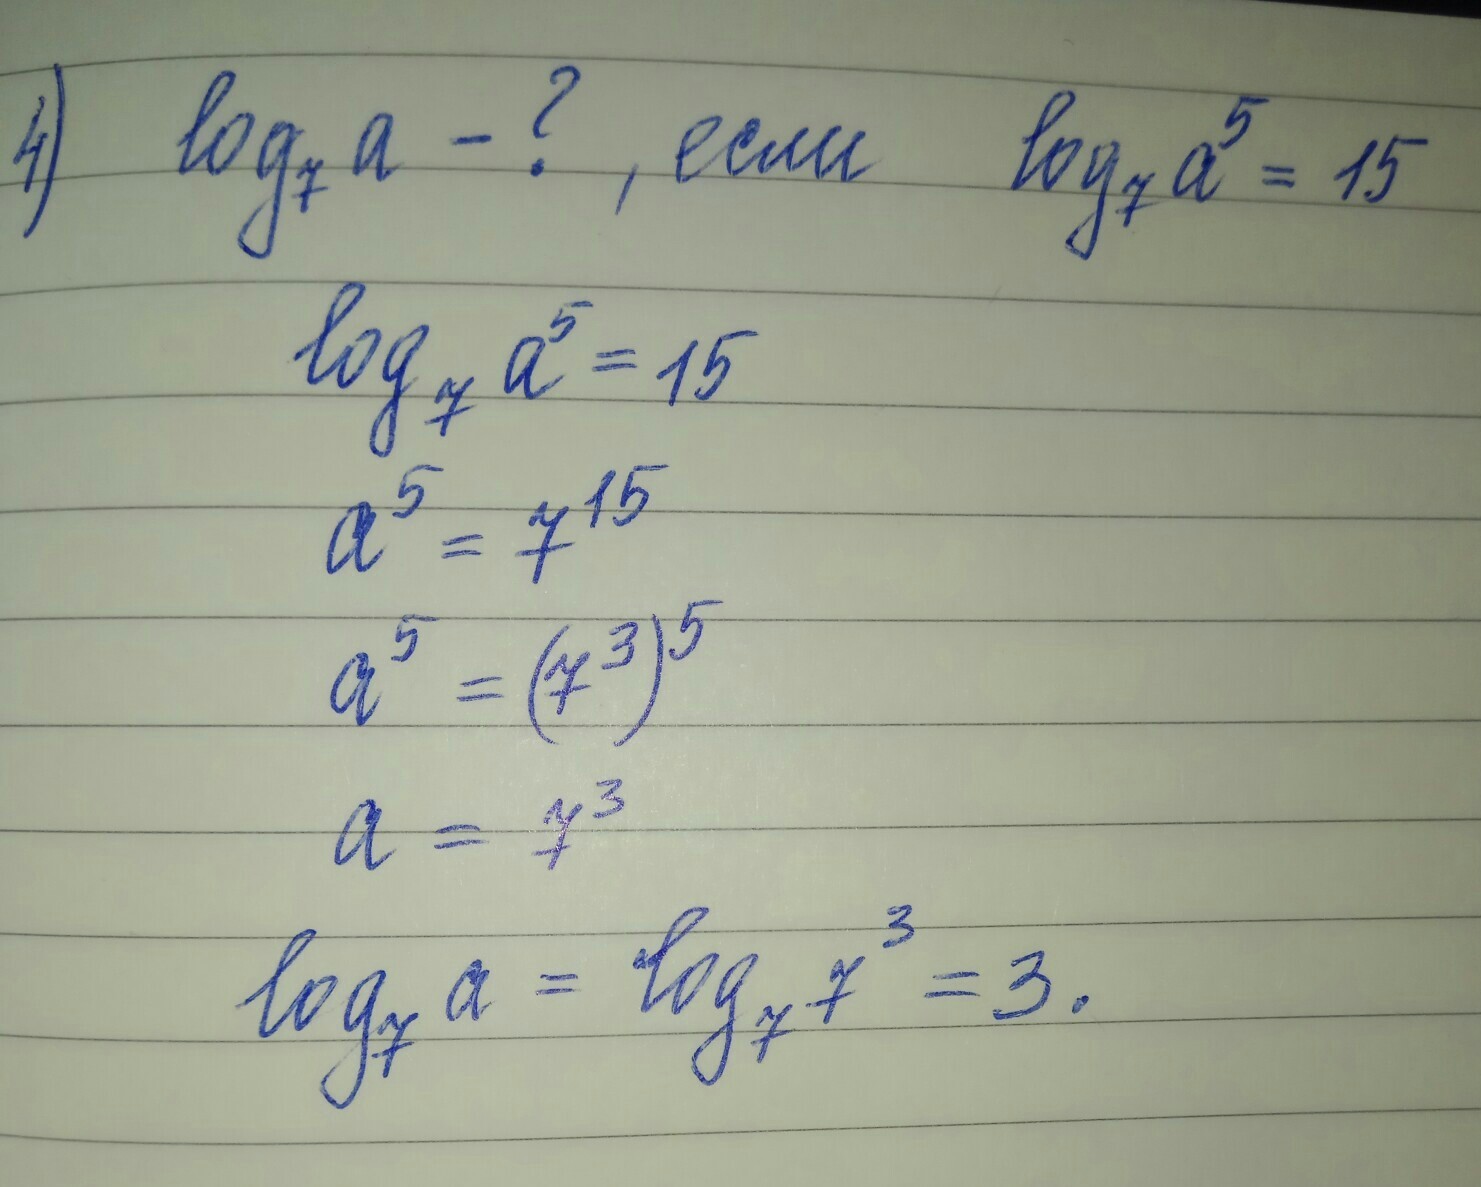 4) log₇ a - ?, если log₇ a⁵ = 15
log₇ a⁵ = 15
a⁵ = 7¹⁵
a⁵ = (7³)⁵
a = 7³
log₇ a = log₇ 7³ = 3.